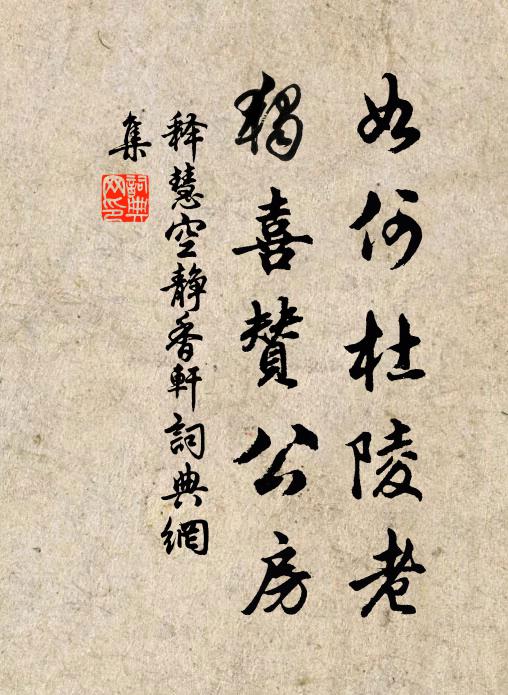 如何杜陵老
獨喜贊公房
释慧空静香軒詞典網
集
詞典
网印